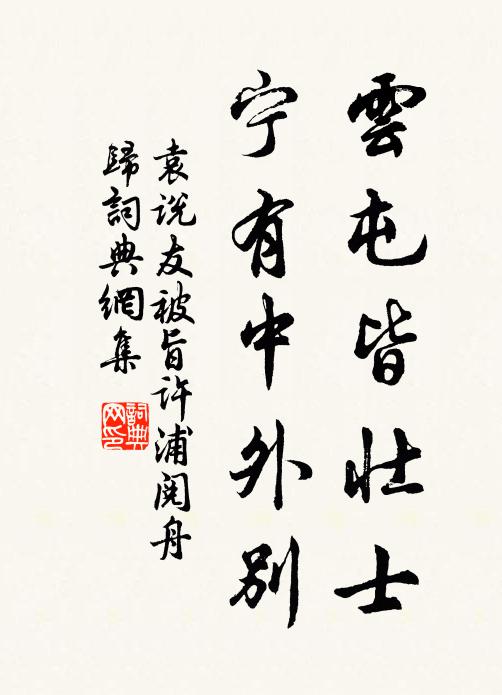 雲屯皆壯士
宁有中外別
袁说友被旨许浦阅舟
歸詞典網集
詞典网印